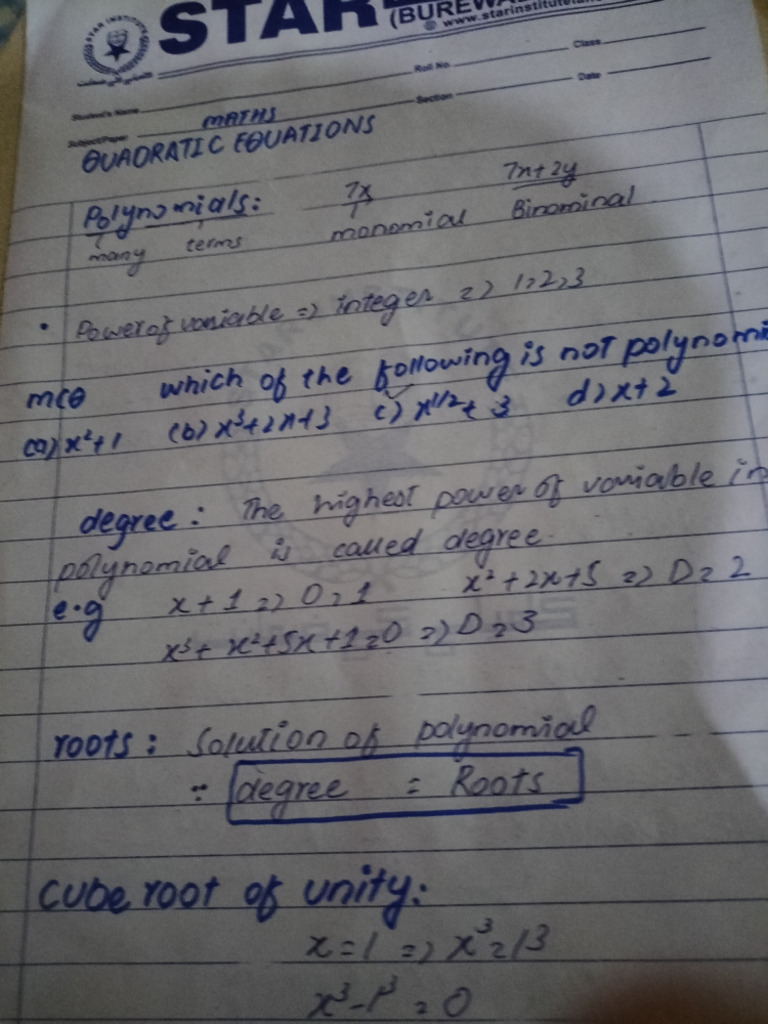 STAR
(BUREWA
www.starinstitute
STAR INSTITUTE
Roll No. Class
Student's Name
Section Date
Subject/Paper MATHS
QUADRATIC EQUATIONS
Polynomials: 7x 7x+2y
many terms monomial Binominal
• Power of variable => integer => 1,2,3
MCQ which of the following is not polynomi
(a) x²+1 (b) x³+2x+3 c) x^1/2 + 3 d) x+2
degree: The highest power of variable in
polynomial is called degree.
e.g x + 1 => D=1 x² + 2x+5 => D=2
x³+ x²+5x+1=0 => D=3
roots: Solution of polynomial
∵ degree = Roots
cube root of unity:
x=1 => x³=1³
x³-1³=0